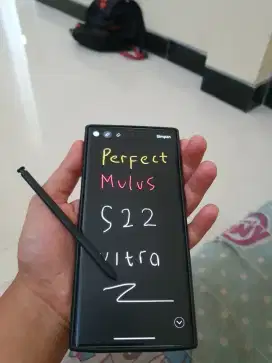 Simpan
Perfect
Mulus
S22
Ultra